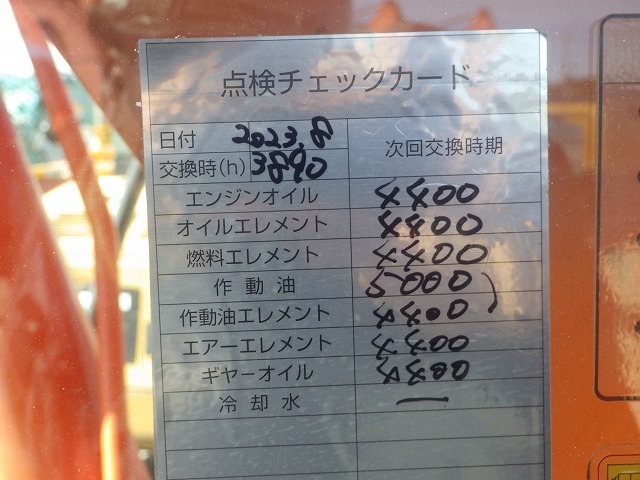 点検チェックカード
日付 2023.8
交換時(h) 3890 次回交換時期
エンジンオイル 4400
オイルエレメント 4400
燃料エレメント 4400
作動油 5000
作動油エレメント 4400
エアーエレメント 4400
ギヤーオイル 4400
冷却水 ー